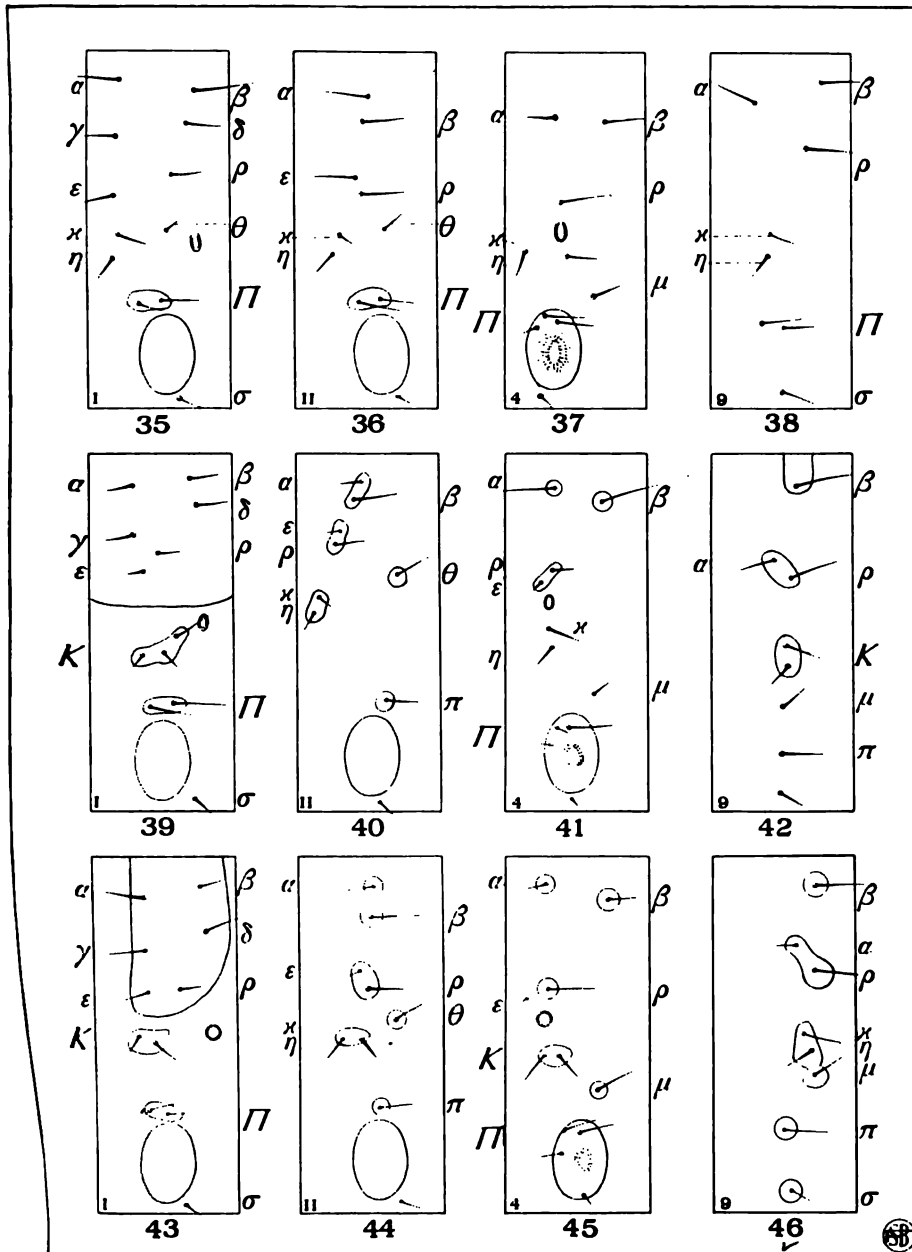 α β γ δ ε ρ ϰ θ η Π σ 1
35
α β ε ρ ϰ θ η Π 11
36
α β ρ ϰ η μ Π 4
37
α β ρ ϰ η Π σ 9
38
α β δ γ ρ ε K Π σ 1
39
α β ε ρ θ ϰ η π 11
40
α β ρ ε ϰ η μ Π 4
41
β α ρ K μ π 9
42
α β δ γ ε ρ K Π σ 1
43
α β ε ρ θ ϰ η π 11
44
α β ρ ε K μ Π 4
45
β α ρ ϰ η μ π σ 9
46